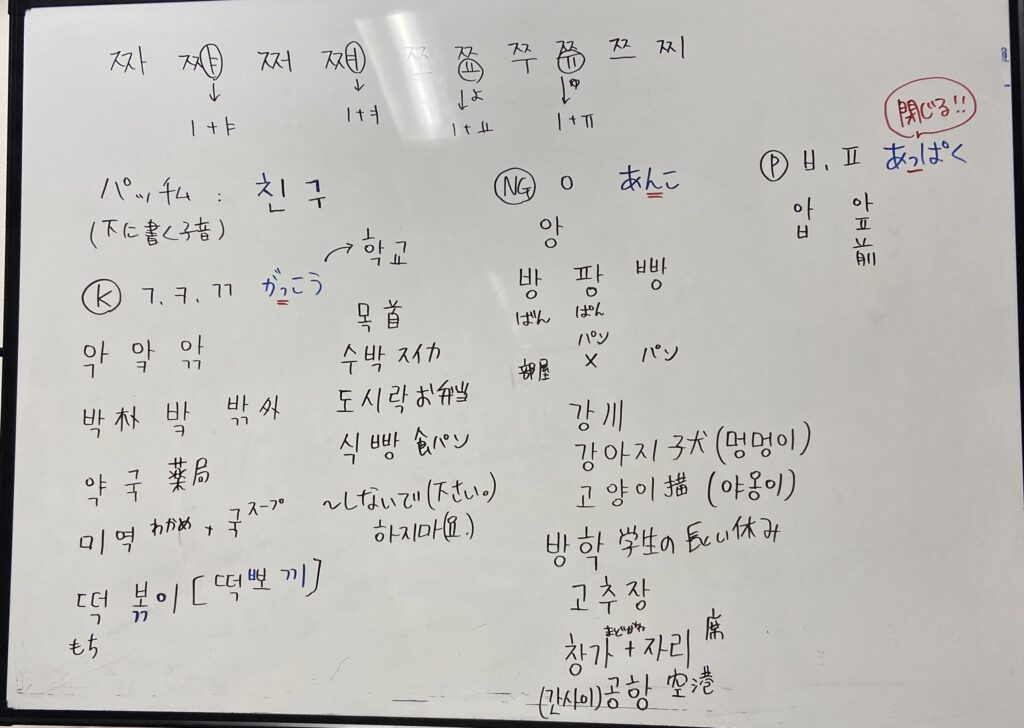 짜 쨔 쩌 쪄 쪼 쬬 쭈 쮸 쯔 찌
ㅣ+ㅑ ㅣ+ㅕ ㅣ+ㅛ よ ㅣ+ㅠ ゆ
パッチム : 친구
(下に書く子音)
Ⓚ ㄱ.ㅋ.ㄲ がっこう → 학교
악 앜 앆
박 朴 밬 밖 外
약국 薬局
미역 わかめ + 국 スープ
떡볶이 [떡뽀끼]
もち
목 首
수박 スイカ
도시락 お弁当
식빵 食パン
~しないで(下さい。)
하지마(요.)
NG ㅇ あんこ
앙
방 팡 빵
ばん ぱん
パン
部屋 × パン
강 川
강아지 子犬 (멍멍이)
고양이 描 (야옹이)
방학 学生の長い休み
고추장
まどがわ
창가 + 자리 席
(간사이)공항 空港
閉じる!!
Ⓟ ㅂ.ㅍ あっぱく
압 앞
前